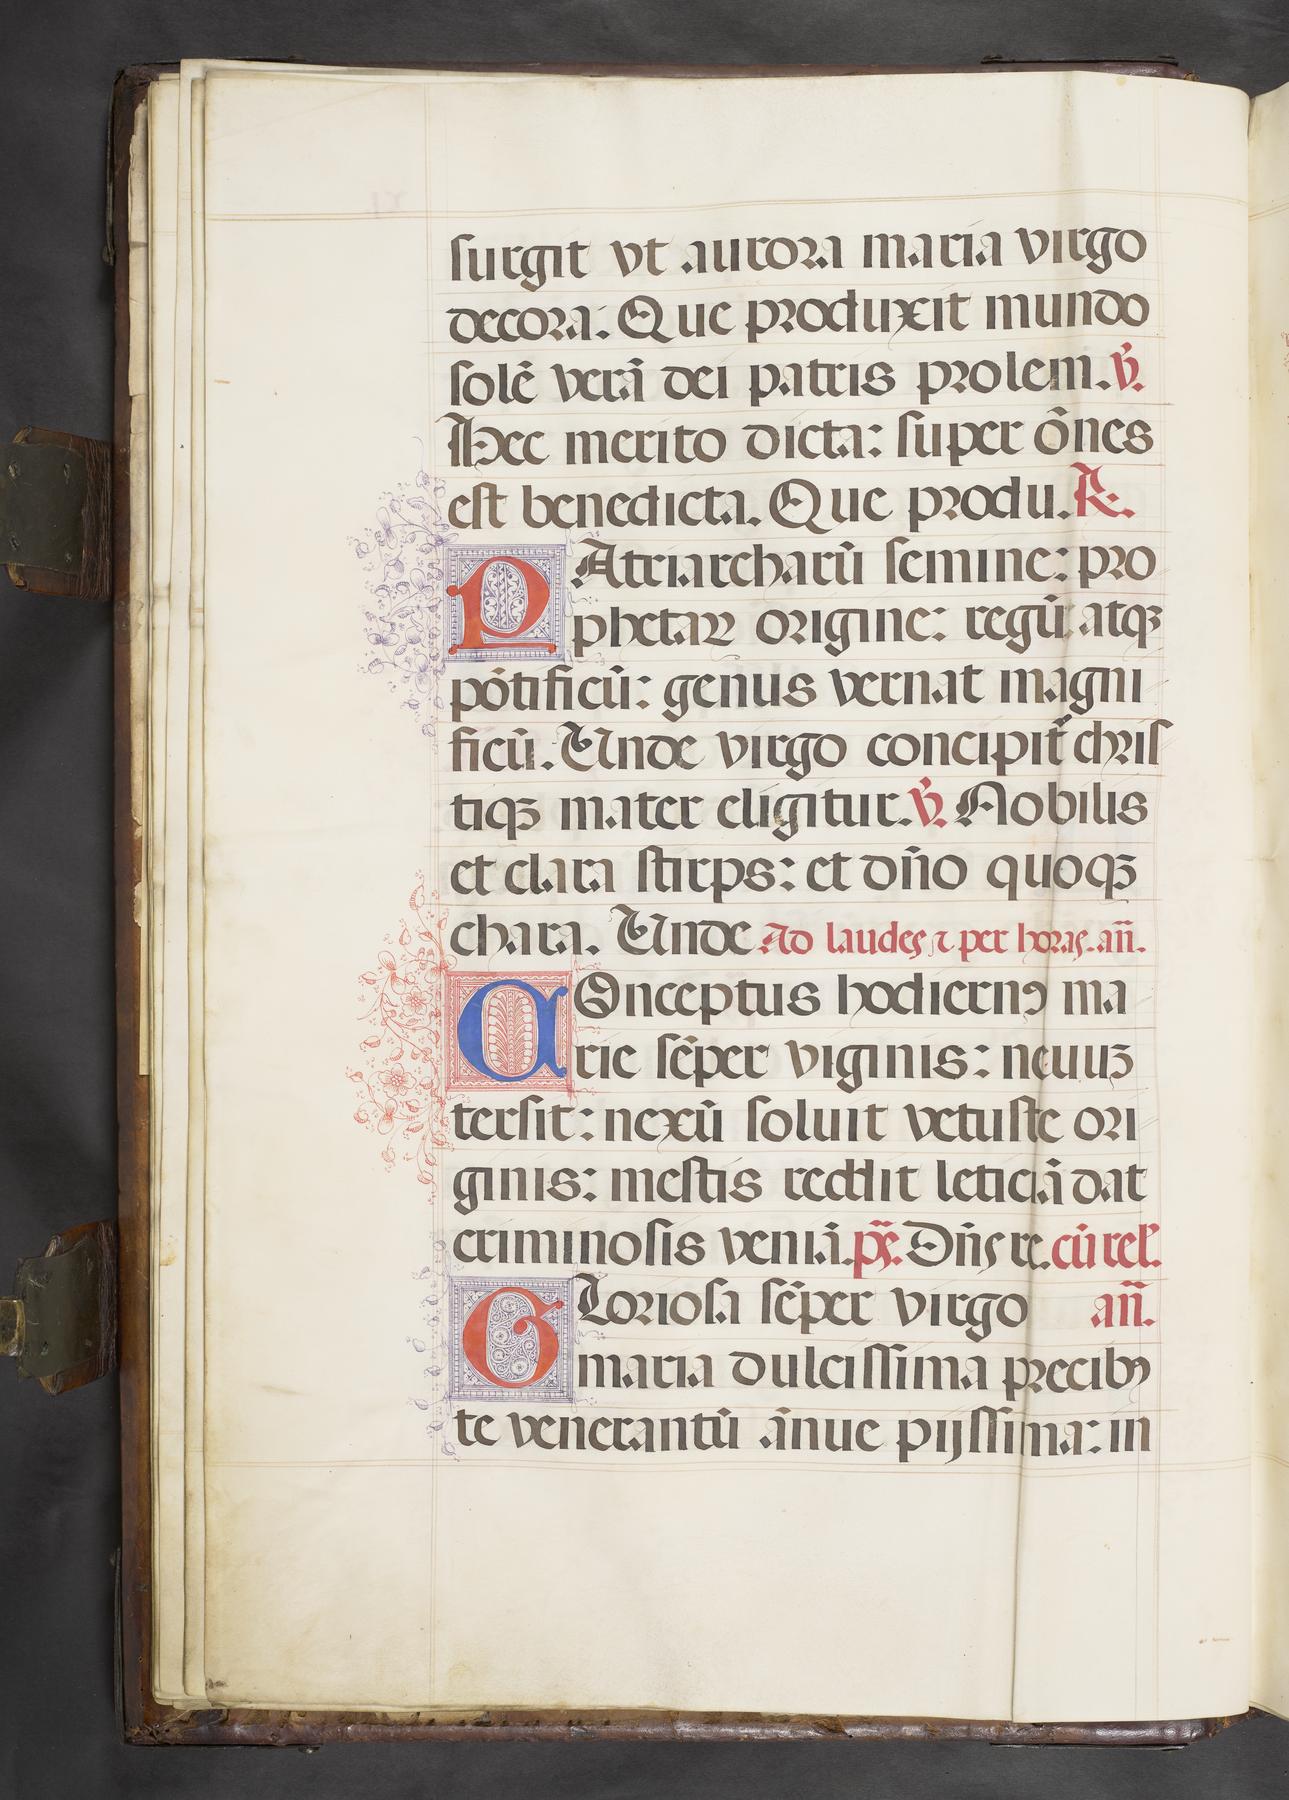 surgit vt aurora maria virgo
decora: Que produxit mundo
solē verā dei patris prolem. ℣.
Hec merito dicta: super ōnes
est benedicta. Que produ. ℟.
PAtriarcharū semine: pro
phetaꝝ origine: regū atqꝫ
pōtificū: genus vernat magni
ficū. Unde virgo concipit᷑ chris
tiqꝫ mater eligitur. ℣. Nobilis
et clara stirps: et dn̄o quoqꝫ
chara. Unde Ad laudes ⁊ per horas. an̄.
COnceptus hodiernꝰ ma
rie sēper viginis: neuuꝫ
tersit: nexū soluit vetuste ori
ginis: mestis reddit leticiā dat
criminosis veniā. p̄s. Dn̄s re. cū rel.
GLoriosa sēper virgo an̄.
maria dulcissima precibꝰ
te venerantū ānue pijssima: in